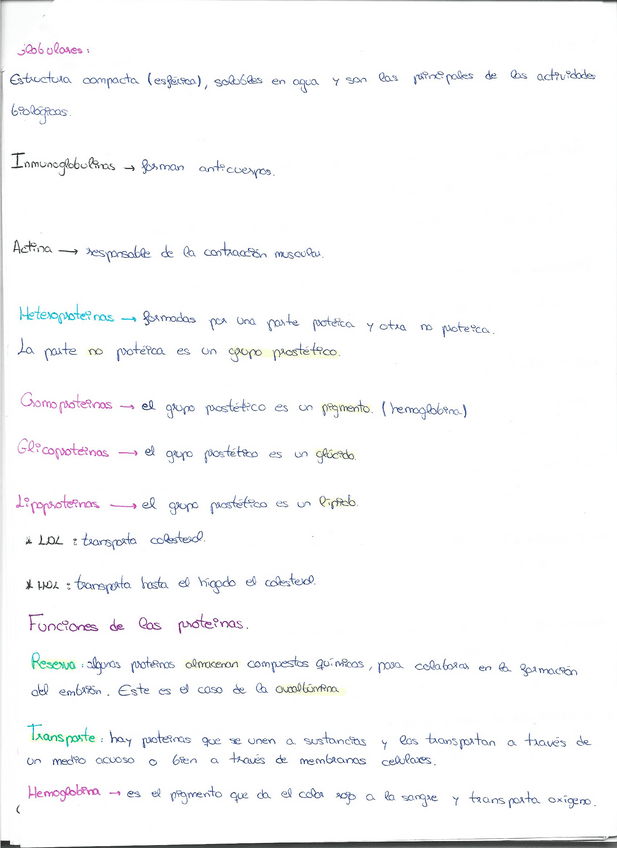 globulares:
Estructura compacta (esférica), solubles en agua y son las principales de las actividades
biológicas.
Inmunoglobulinas → forman anticuerpos.
Actina → responsable de la contracción muscular.
Heteroproteínas → formadas por una parte protéica y otra no proteica.
La parte no protéica es un grupo prostético.
Cromoproteínas → el grupo prostético es un pigmento. (hemoglobina)
Glicoproteínas → el grupo prostético es un glúcido.
Lipoproteínas → el grupo prostético es un lípido.
* LDL : transporta colesterol.
* HDL : transporta hasta el hígado el colesterol.
Funciones de las proteínas.
Reserva : algunas proteínas almacenan compuestos químicos, para colaborar en la formación
del embrión. Este es el caso de la ovoalbúmina
Transporte : hay proteínas que se unen a sustancias y las transportan a través de
un medio acuoso o bien a través de membranas celulares.
Hemoglobina → es el pigmento que da el color rojo a la sangre y transporta oxígeno.
(